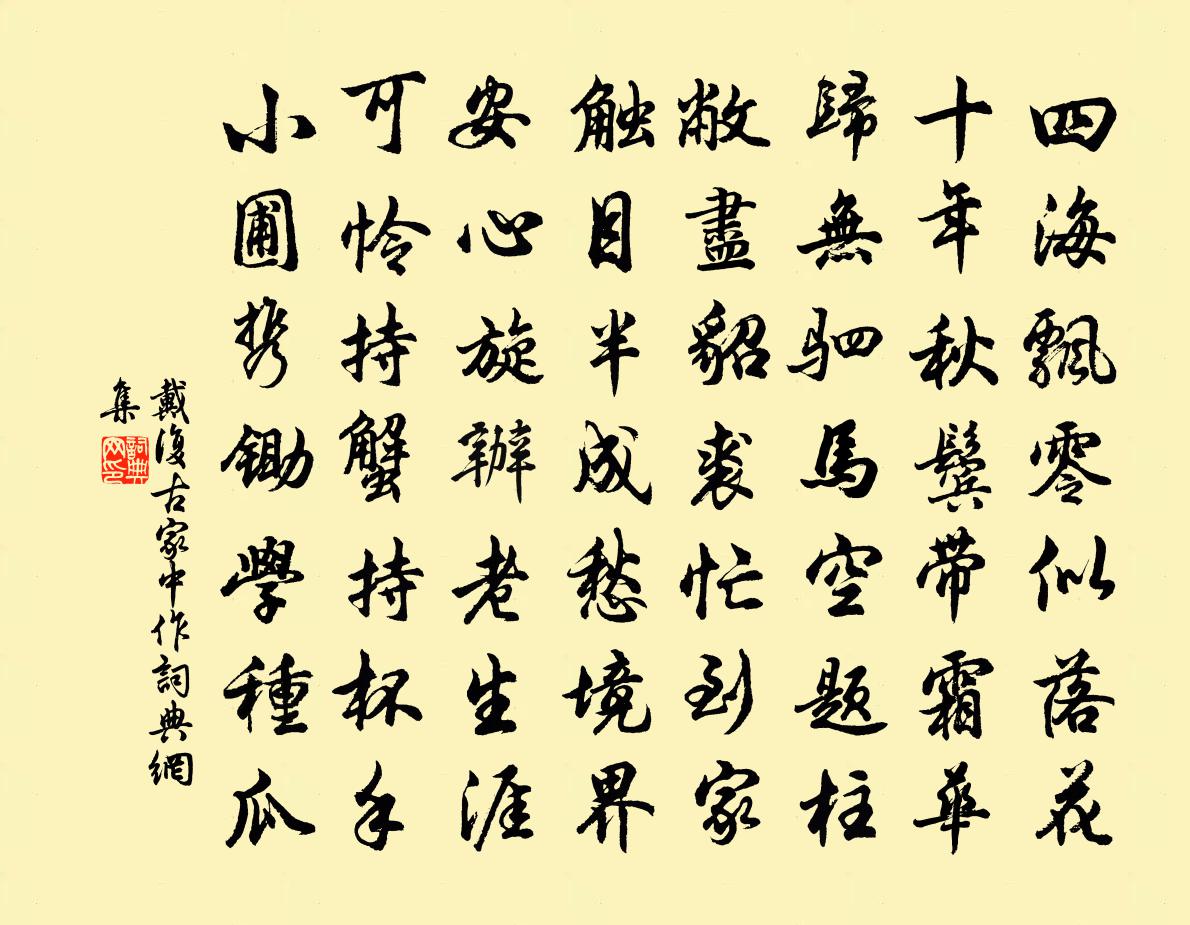 四海飄零似落花
十年秋鬢带霜華
歸無駟馬空題柱
敝盡貂裘忙到家
触目半成愁境界
安心旋辦老生涯
可怜持蟹持杯手
小圃携鋤學種瓜
戴復古家中作詞典網
集
詞典網印